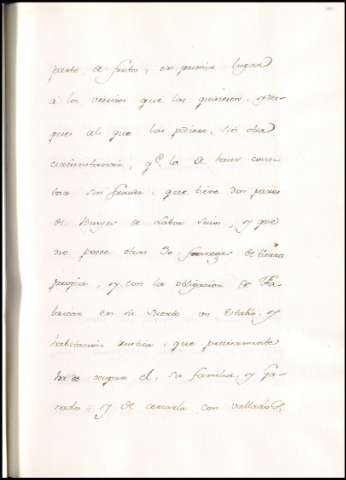 parte de frutos, en primer lugar
a los vecinos que las quisieren, despues
al que las pidiere, sin otra
circunstancia, qe. la de hacer constar
sin familia, que tiene dos pares
de Bueyes de labor suios, y que
no posee otras 30 fanegas de tierra
propia, y con la obligacion de Fabricar
en su suerte un Establo, y
habitacion rustica, que precisamente
ha de ocupar el, su familia, y Ganado,
y de cercarla con vallado